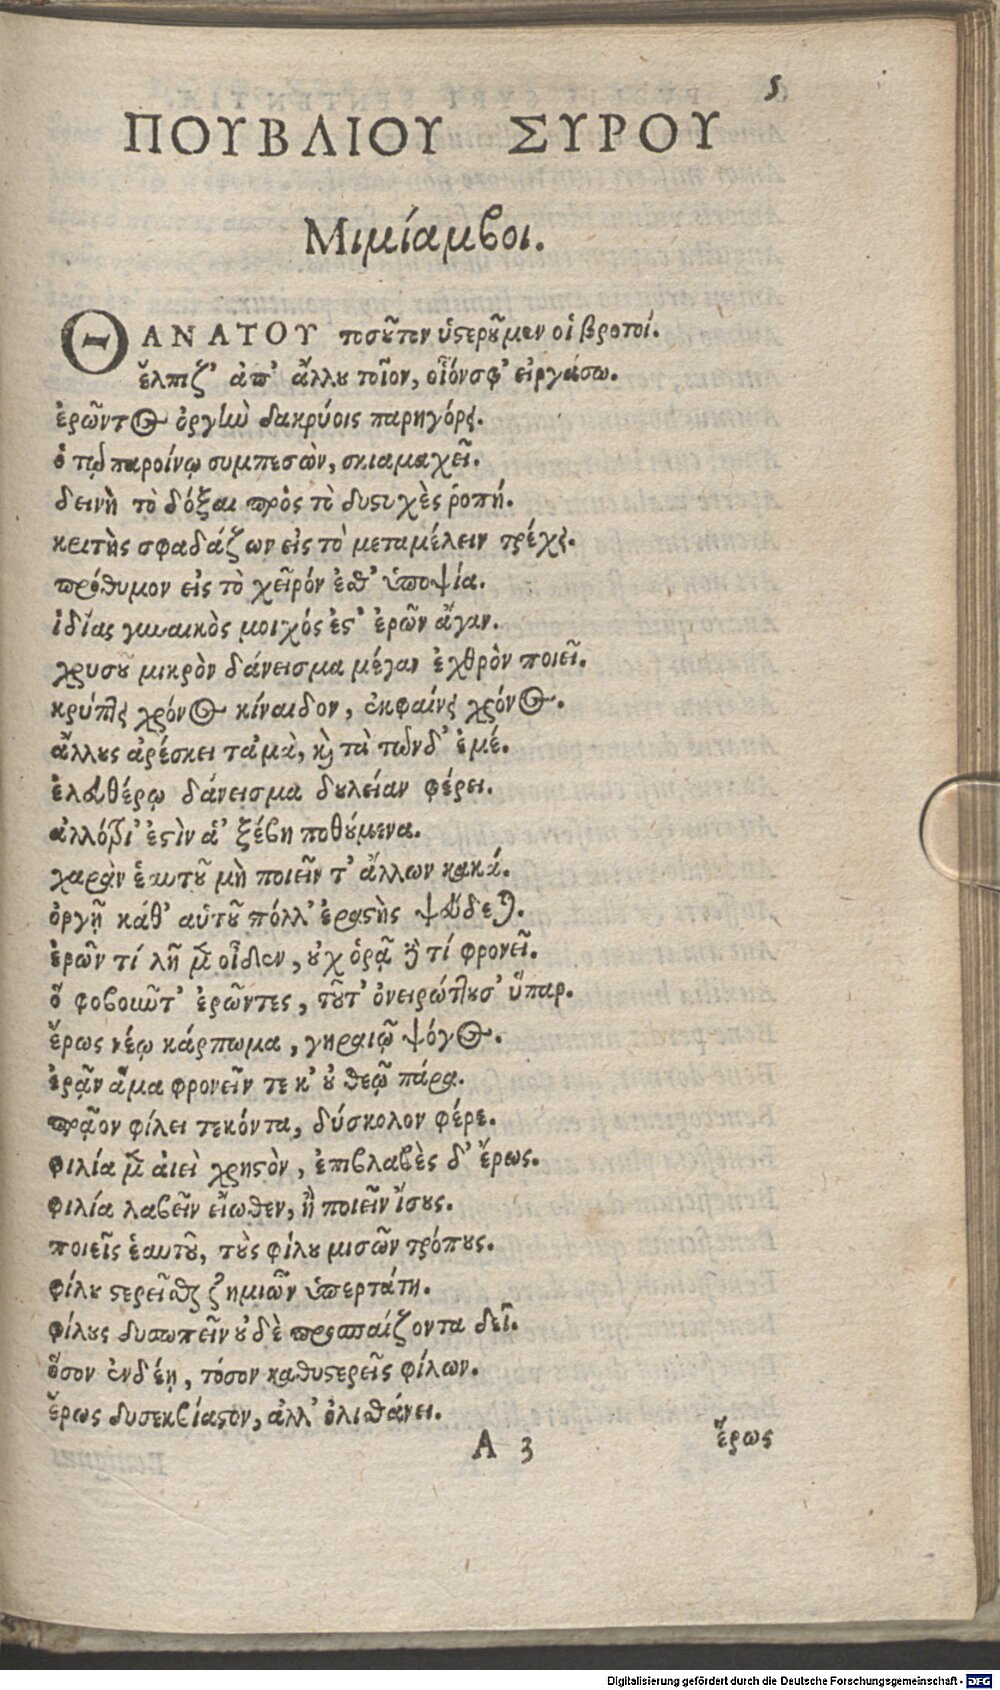 5
ΠΟΥΒΛΙΟΥ ΣΥΡΟΥ
Μιμίαμβοι.
ΘΑΝΑΤΟΥ τοσοῦτον ὑστεροῦμεν οἱ βροτοί.
ἔλπιζ' ἀπ' ἄλλου τοῖον, οἷόνσφ' εἰργάσω.
ἐρῶντος ὀργὴν δακρύοις παρηγόρει.
ὁ τῷ παροίνῳ συμπεσὼν, σκιαμαχεῖ.
δεινὴ τὸ δόξαι πρὸς τὸ δυστυχὲς ῥοπή.
κριτὴς σφαδάζων εἰς τὸ μεταμέλειν τρέχει.
πρόθυμον εἰς τὸ χεῖρόν ἐσθ' ὑποψία.
ἰδίας γυναικὸς μοιχός ἐστ' ἐρῶν ἄγαν.
χρυσοῦ μικρὸν δάνεισμα μέγαν ἐχθρὸν ποιεῖ.
κρύπτει χρόνος κίναιδον, ἐκφαίνει χρόνος.
ἄλλους ἀρέσκει τἀμὰ, καὶ τὰ τῶνδ' ἐμέ.
ἐλευθέρῳ δάνεισμα δουλείαν φέρει.
ἀλλότρι' ἐστὶν ἃ' ξέβη ποθούμενα.
χαρὰν ἑαυτοῦ μὴ ποιεῖν τ' ἄλλων κακά.
ὀργῇ κάθ' αὑτοῦ πόλλ' ἐραστὴς ψεύδεται.
ἐρῶν τί λῇ μὲν οἶδεν, οὐχ ὁρᾷ δὲ τί φρονεῖ.
ὃ φοβοιῶτ' ἐρῶντες, τοῦτ' ὀνειρώττουσ' ὕπαρ.
ἔρως νέῳ κάρπωμα, γηραιῷ ψόγος.
ἐρᾷν ἅμα φρονεῖν τε κ' οὐ θεῷ πάρα.
πρᾷον φίλει τεκόντα, δύσκολον φέρε.
φιλία μὲν αἰεὶ χρηστὸν, ἐπιβλαβὲς δ' ἔρως.
φιλία λαβεῖν εἴωθεν, ἢ ποιεῖν ἴσους.
ποιεῖς ἑαυτοῦ, τοὺς φίλου μισῶν τρόπους.
φίλου στερεῖσθαι ζημιῶν ὑπερτάτη.
φίλους δυσωπεῖν οὐδὲ προσπαίζοντα δεῖ.
ὅσον ἐνδέῃ, τόσον καθυστερεῖς φίλων.
ἔρως δυσεκβίαστον, ἀλλ' ὀλισθάνει.
A 3 ἔρως
Digitalisierung gefördert durch die Deutsche Forschungsgemeinschaft - DFG